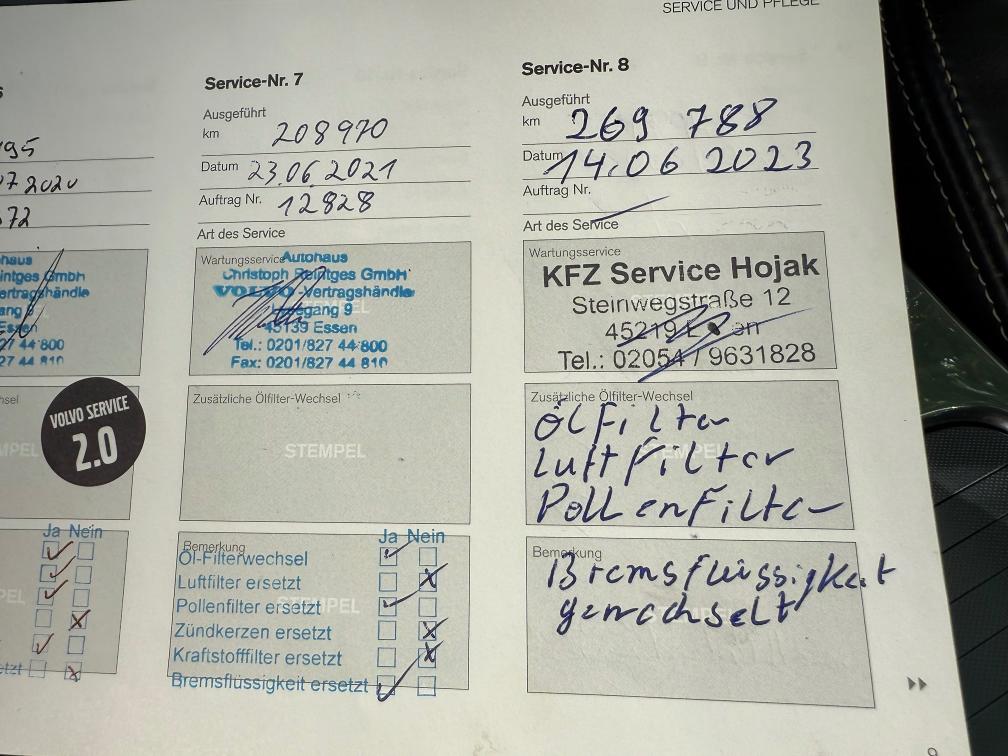 SERVICE UND PFLEGE
95
7 2020
72
haus
intges Gmbh
ertragshändle
ang 9
Essen
27 44 800
27 44 810
VOLVO SERVICE
2.0
Ja Nein
Service-Nr. 7
Ausgeführt
km 208970
Datum 23.06.2021
Auftrag Nr. 12828
Art des Service
Wartungsservice
Autohaus
Christoph Reintges GmbH
VOLVO-Vertragshändle
gang 9
45139 Essen
Tel.: 0201/827 44 800
Fax: 0201/827 44 810
Zusätzliche Ölfilter-Wechsel
STEMPEL
Bemerkung
Ja Nein
Öl-Filterwechsel
Luftfilter ersetzt
Pollenfilter ersetzt
Zündkerzen ersetzt
Kraftstofffilter ersetzt
Bremsflüssigkeit ersetzt
Service-Nr. 8
Ausgeführt
km 269 788
Datum 14.06 2023
Auftrag Nr.
Art des Service
Wartungsservice
KFZ Service Hojak
Steinwegstraße 12
45219
Tel.: 02054 / 9631828
Zusätzliche Ölfilter-Wechsel
Ölfilter
Luftfilter
Pollenfilter
Bemerkung
Bremsflüssigkeit
gewechselt